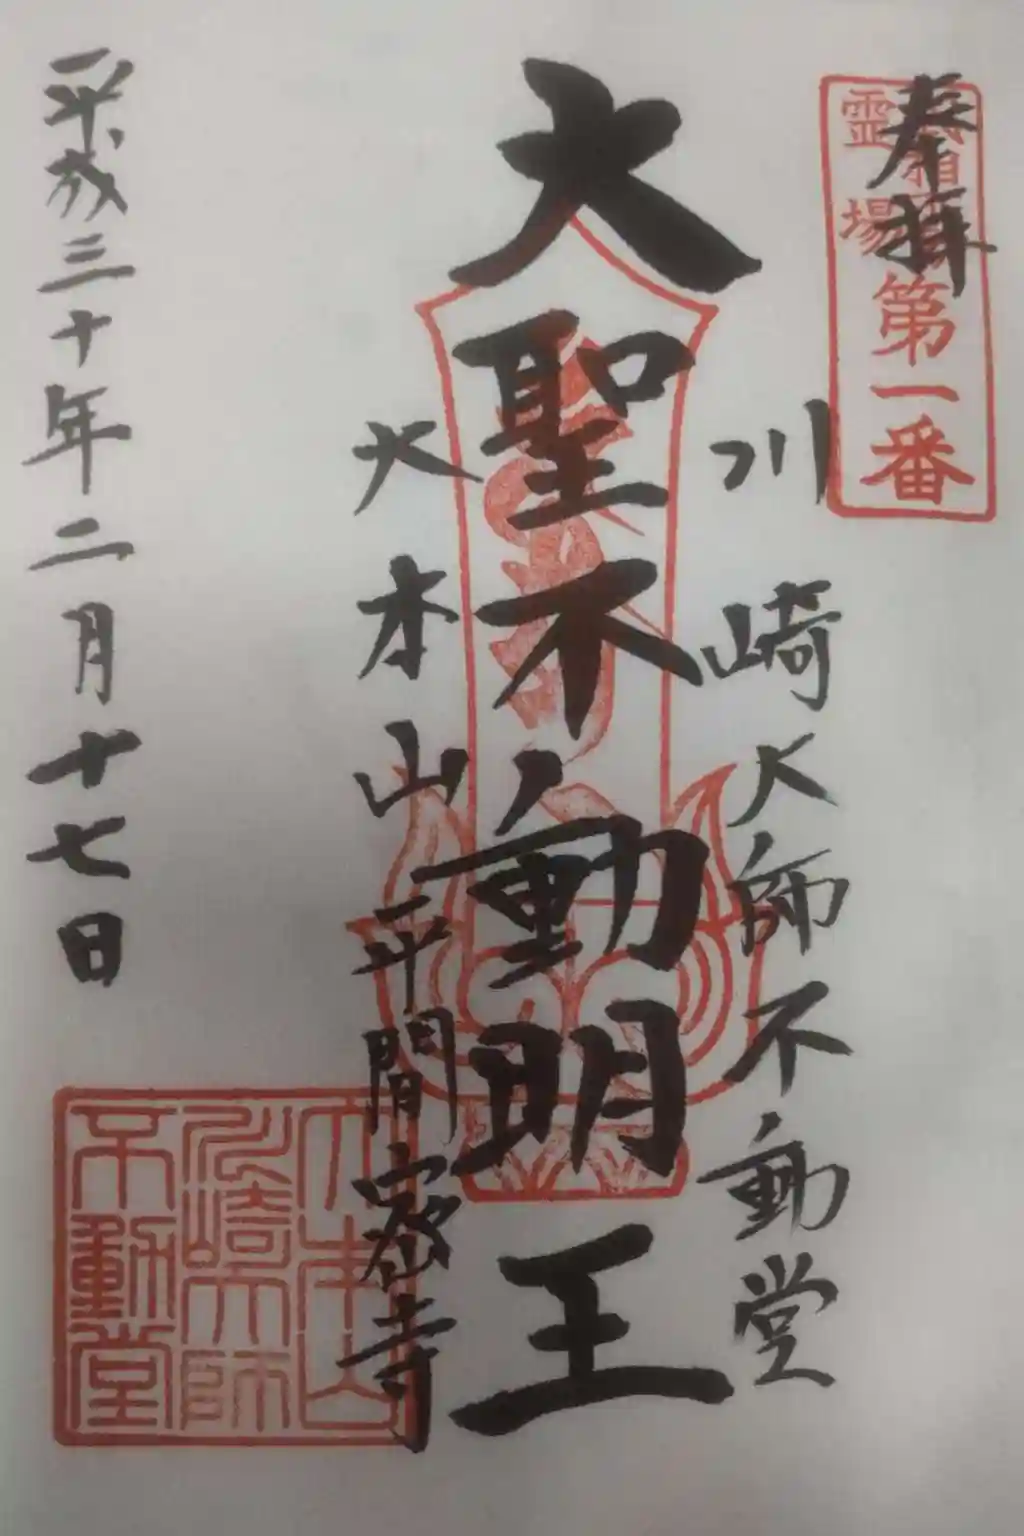 奉拝
霊場
第一番
川崎大師不動堂
大聖不動明王
大本山平間寺
平成三十年二月十七日
大本山
川崎大師
不動堂